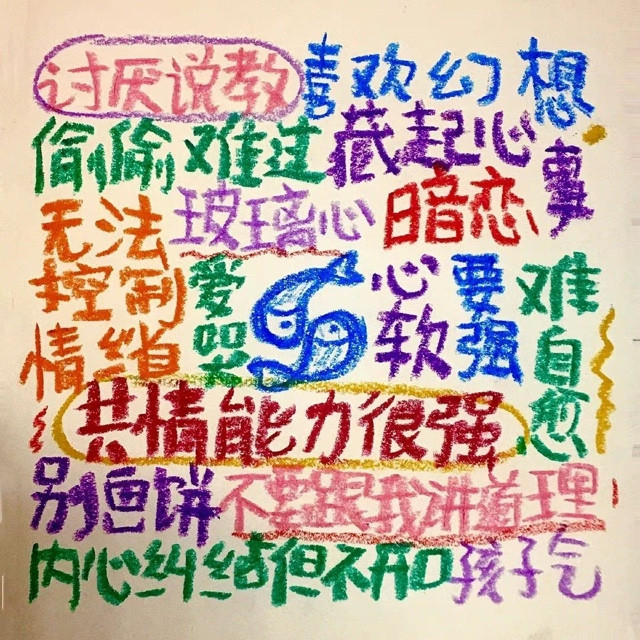 讨厌说教 喜欢幻想
偷偷难过 藏起心事
无法控制情绪 玻璃心 暗恋
爱哭 心软 要强 难自愈
共情能力很强
别画饼 不要跟我讲道理
内心纠结但不开口 孩子气